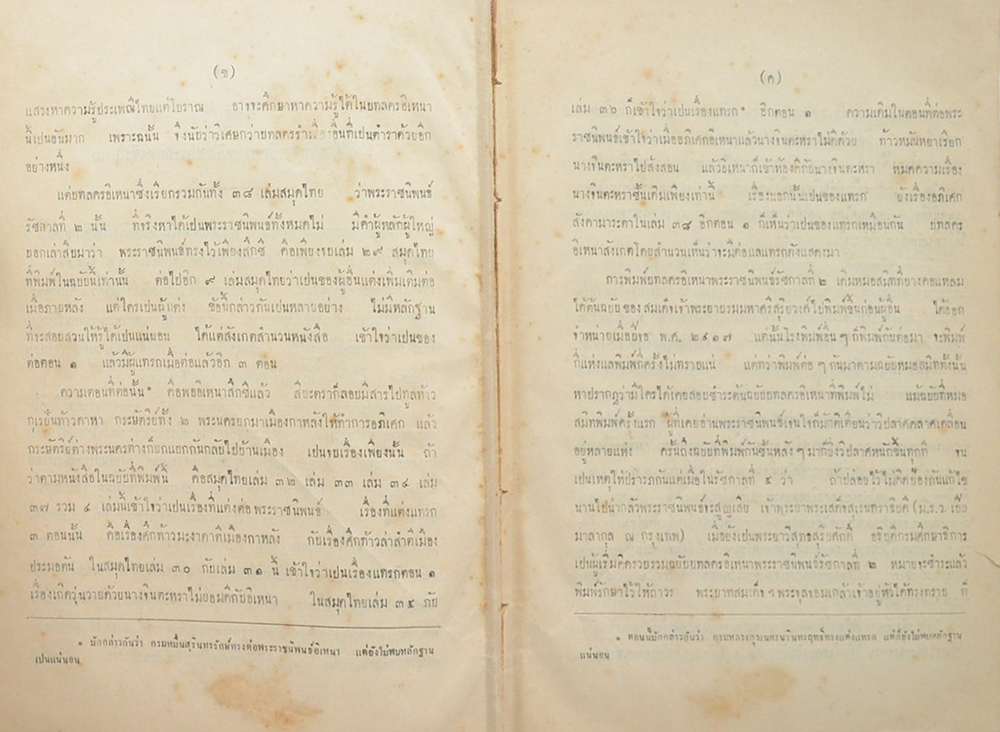 (ข)
แสวงหาความรู้ประเพณีไทยแต่โบราณ อาจจะศึกษาหาความรู้ได้ในบทลครอิเหนา
นี้เป็นอันมาก เพราะฉนั้น จึงนับว่าวิเศษกว่าบทลครรำเรื่องอื่นที่เป็นตำราด้วยอีก
อย่างหนึ่ง
แต่บทลครอิเหนาซึ่งเรียกรวมกันทั้ง ๓๘ เล่มสมุดไทย ว่าพระราชนิพนธ์
รัชกาลที่ ๒ นั้น ที่จริงหาได้เป็นพระราชนิพนธ์ทั้งหมดไม่ มีคำผู้หลักผู้ใหญ่
บอกเล่าสืบมาว่า พระราชนิพนธ์ทรงไว้เพียงสึกชี คือเพียงจบเล่ม ๒๙ สมุดไทย
ที่พิมพ์ในฉบับนี้เท่านั้น ต่อไปอีก ๙ เล่มสมุดไทยว่าเป็นของผู้อื่นแต่งเพิ่มเติมต่อ
เมื่อภายหลัง แต่ใครเป็นผู้แต่ง ข้อนี้กล่าวกันเป็นหลายอย่าง ไม่มีหลักฐาน
ที่จะสอบสวนให้รู้ได้เป็นแน่นอน ได้แต่สังเกตสำนวนหนังสือ เข้าใจว่าเป็นของ
ต่อตอน ๑ แล้วมีผู้แทรกเมื่อต่อแล้วอีก ๓ ตอน
ความตอนที่ต่อนั้น* คือพออิเหนาสึกชีแล้ว สียะตราก็ลอบมีสารไปทูลท้าว
กุเรปันท้าวดาหา กระษัตริย์ทั้ง ๒ พระนครยกมาเมืองกาหลังให้ทำการอภิเศก แล้ว
กระษัตริย์ต่างพระนครต่างก็ยกแยกกันกลับไปบ้านเมือง เป็นจบเรื่องเพียงนั้น ถ้า
ว่าตามหนังสือในฉบับที่พิมพ์นี้ คือสมุดไทยเล่ม ๓๒ เล่ม ๓๓ เล่ม ๓๔ เล่ม
๓๗ รวม ๔ เล่มนี้เข้าใจว่าเป็นเรื่องที่แต่งต่อพระราชนิพนธ์ เรื่องที่แต่งแทรก
๓ ตอนนั้น คือเรื่องศึกท้าวมะงาดาตีเมืองกาหลัง กับเรื่องศึกท้าวล่าสำตีเมือง
ประมอตัน ในสมุดไทยเล่ม ๓๐ กับเล่ม ๓๑ นี้ เข้าใจว่าเป็นเรื่องแทรกตอน ๑
เรื่องเกิดวุ่นวายด้วยนางจินตะหราไม่ยอมดีกับอิเหนา ในสมุดไทยเล่ม ๓๕ กับ
* มักกล่าวกันว่า กรมหมื่นสุรินทรรักษ์ทรงต่อพระราชนิพนธ์อิเหนา แต่ยังไม่พบหลักฐาน
เปนแน่นอน
(ค)
เล่ม ๓๖ ก็เข้าใจว่าเป็นเรื่องแทรก* อีกตอน ๑ ความเดิมในตอนที่ต่อพระ
ราชนิพนธ์เข้าใจว่าเมื่ออภิเศกอิเหนาแล้วนางจินตะหราไม่ดีด้วย ท้าวหมันหยาเรียก
นางจินตะหราไปสั่งสอน แล้วอิเหนาก็เข้าห้องดีกับนางจินตะหรา หมดความเรื่อง
นางจินตะหราชั้นเดิมเพียงเท่านี้ เรื่องนอกนั้นเป็นของแทรก ยังเรื่องอภิเศก
สังคามาระตาในเล่ม ๓๘ อีกตอน ๑ ก็เห็นว่าเป็นของแทรกเหมือนกัน บทลคร
อิเหนาสังเกตโดยสำนวนเห็นว่าจะมีต่อแลแทรกดังแสดงมา
การพิมพ์บทลครอิเหนาพระราชนิพนธ์รัชกาลที่ ๒ เดิมหมอสมิทที่บางคอแหลม
ได้ต้นฉบับของสมเด็จเจ้าพระยาบรมมหาศรีสุริยวงศ์ไปพิมพ์ขึ้นก่อนผู้อื่น ได้ออก
จำหน่ายเมื่อปีจอ พ.ศ. ๒๔๑๗ แต่นั้นโรงพิมพ์อื่น ๆ ก็พิมพ์กันต่อมา จะพิมพ์
กี่แห่งแลพิมพ์กี่ครั้งไม่ทราบแน่ แต่ทว่าพิมพ์ต่อ ๆ กันมาตามฉบับหมอสมิททั้งนั้น
หาปรากฏว่ามีใครได้เคยสอบชำระต้นฉบับบทลครอิเหนาที่พิมพ์ไม่ แม้ฉบับที่หมอ
สมิทพิมพ์ครั้งแรก ผู้ที่เคยอ่านพระราชนิพนธ์เจนใจก็มักติเตียนว่าวิปลาศคลาดเคลื่อน
อยู่หลายแห่ง ครั้นถึงฉบับที่พิมพ์กันชั้นหลัง ๆ มาก็ยิ่งวิปลาศหนักขึ้นทุกที จน
เป็นเหตุให้ปรารภกันแต่เมื่อในรัชกาลที่ ๕ ว่า ถ้าปล่อยไว้ไม่คิดป้องกันแก้ไข
นานไปน่ากลัวพระราชนิพนธ์จะสูญเสีย เจ้าพระยาพระเสด็จสุเรนทราธิบดี (ม.ร.ว. เปีย
มาลากุล ณ กรุงเทพ) เมื่อยังเป็นพระยาวิสุทธสุริยศักดิ์ อธิบดีกรมศึกษาธิการ
เป็นผู้เริ่มคิดรวบรวมฉบับบทลครอิเหนาพระราชนิพนธ์รัชกาลที่ ๒ หมายจะชำระแล้ว
พิมพ์รักษาไว้ให้ถาวร พระบาทสมเด็จ ฯ พระจุลจอมเกล้าเจ้าอยู่หัวได้ทรงทราบ ก็
* ตอนนี้มักกล่าวกันว่า กรมหลวงภูวเนตรนรินทรฤทธิ์ทรงแต่งแทรก แต่ก็ยังไม่พบหลักฐาน
แน่นอน